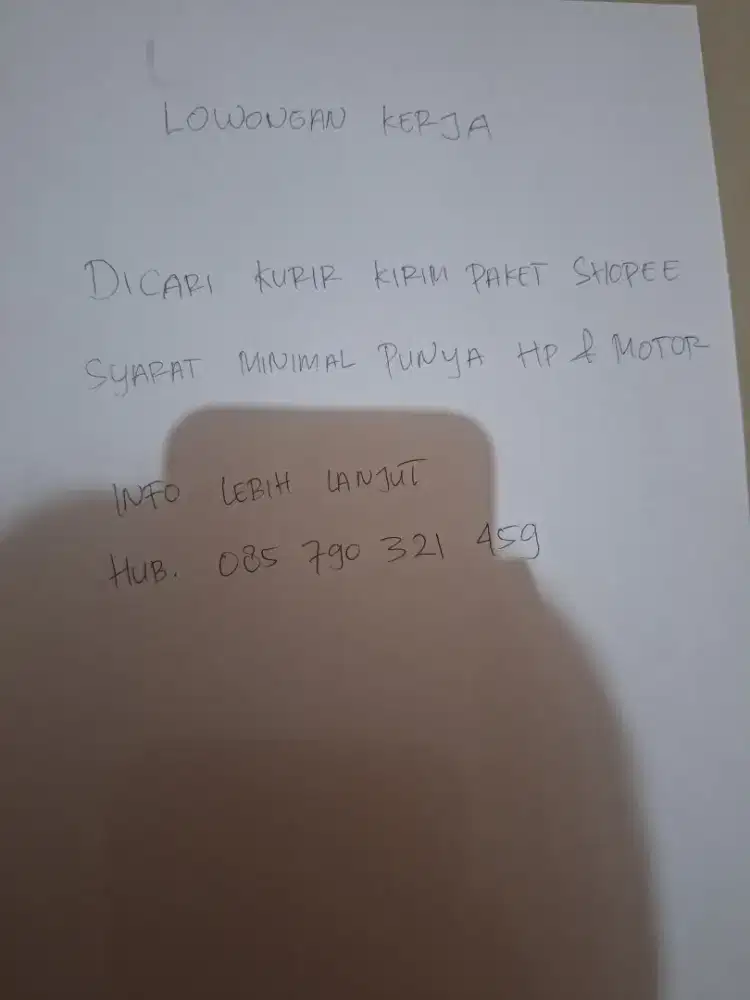 LOWONGAN KERJA
DICARI KURIR KIRIM PAKET SHOPEE
SYARAT MINIMAL PUNYA HP & MOTOR
INFO LEBIH LANJUT
HUB. 085 790 321 459